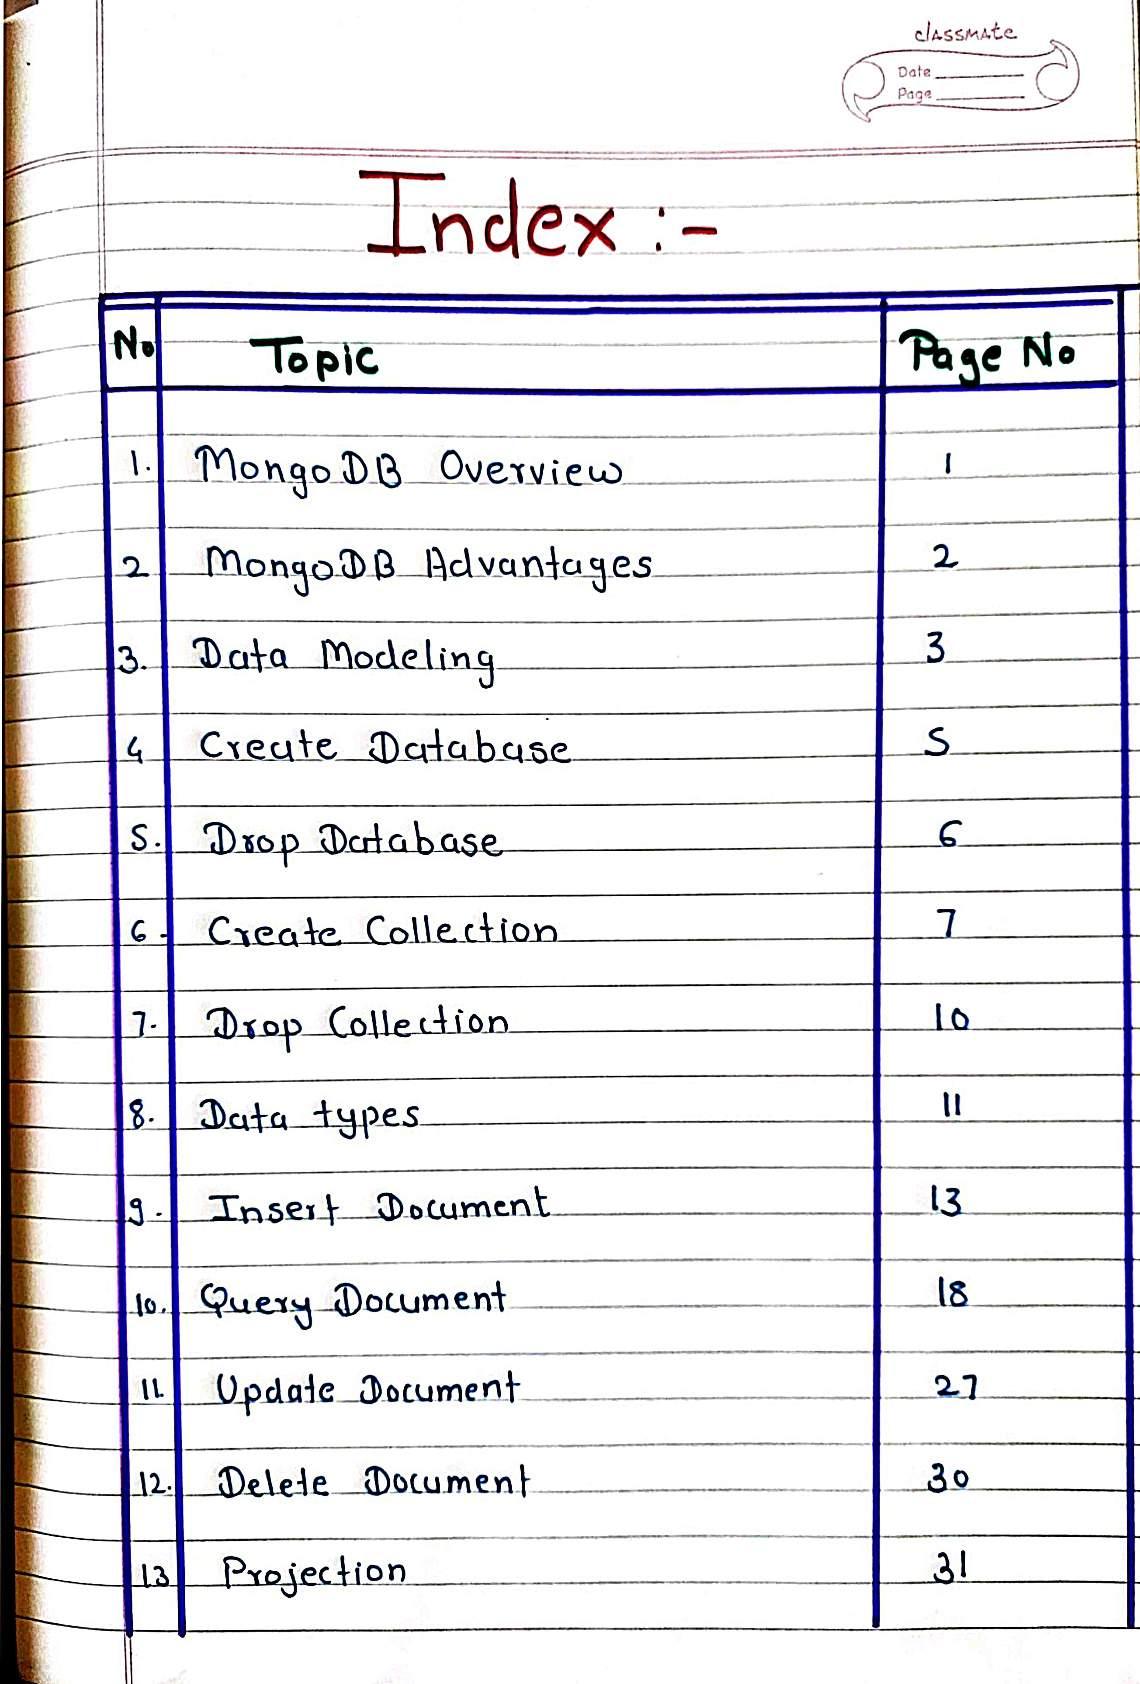 classmate
Date
Page
Index :-
No Topic Page No
1. MongoDB Overview 1
2 MongoDB Advantages 2
3. Data Modeling 3
4 Create Database 5
5. Drop Database 6
6. Create Collection 7
7. Drop Collection 10
8. Data types 11
9. Insert Document 13
10. Query Document 18
11. Update Document 27
12. Delete Document 30
13 Projection 31